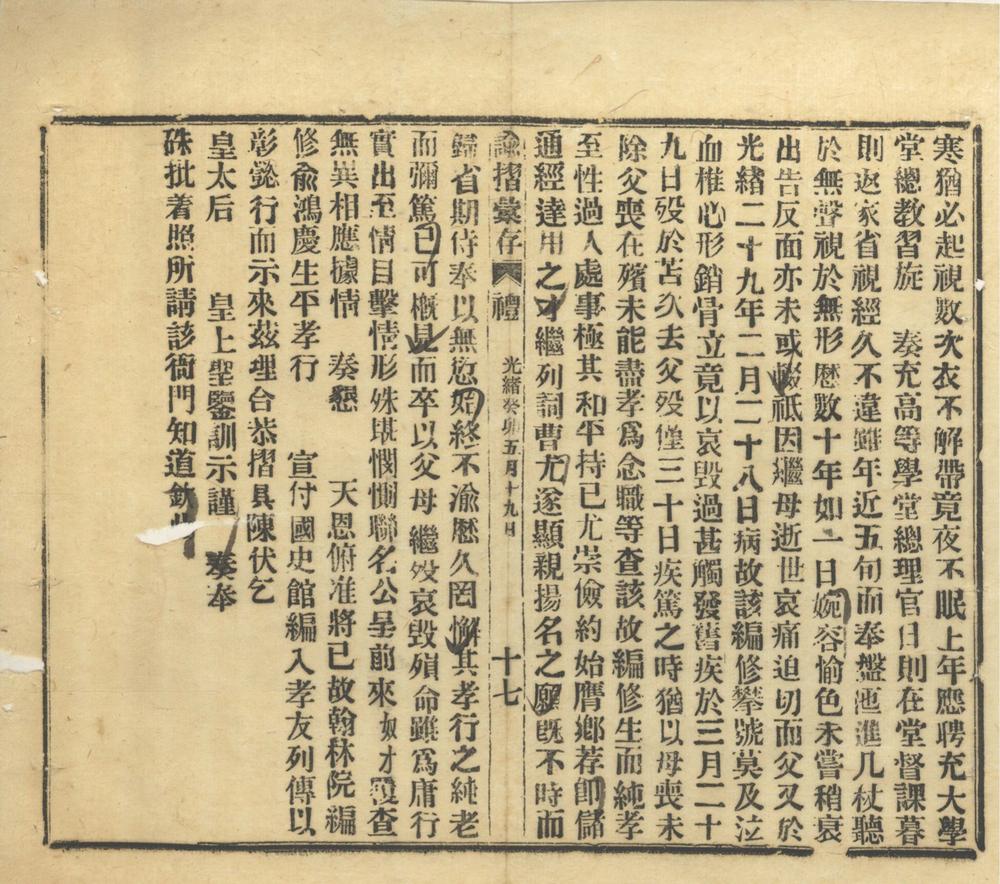 寒猶必起視数次衣不解帶竟夜不眠上年應聘充大學
堂總教習旋 奏充高等學堂總理官日則在堂督課暮
則返家省視經久不違雖年近五旬而奉盤匜進几杖聽
於無聲視於無形歴數十年如一日婉容愉色未嘗稍衰
出告反面亦未或輟祇因繼母逝世哀痛迫切而父又於
光緒二十九年二月二十八日病故該編修攀號莫及泣
血椎心形銷骨立竟以哀毀過甚觸發舊疾於三月二十
九日歿於苫次去父歿僅三十日疾篤之時猶以母喪未
除父喪在殯未能盡孝爲念職等查該故編修生而純孝
至性過人處事極其和平持已尤崇儉約始膺鄉荐卽儲
通經達用之才繼列詞曹尤遂顯親揚名之願旣不時而
諭摺彙存 禮 光緒癸卯五月十九日 十七
歸省期侍奉以無愆始終不渝歴久罔懈其孝行之純老
而彌篤已可概見而卒以父母繼歿哀毀殞命雖爲庸行
實出至情目擊情形殊堪憫惻聯名公呈前來奴才覆查
無異相應據情 奏懇 天恩俯准將已故翰林院編
修兪鴻慶生平孝行 宣付國史館編入孝友列傳以
彰懿行而示來茲理合恭摺具陳伏乞
皇太后 皇上聖鑒訓示謹 奏奉
硃批着照所請該衙門知道欽此